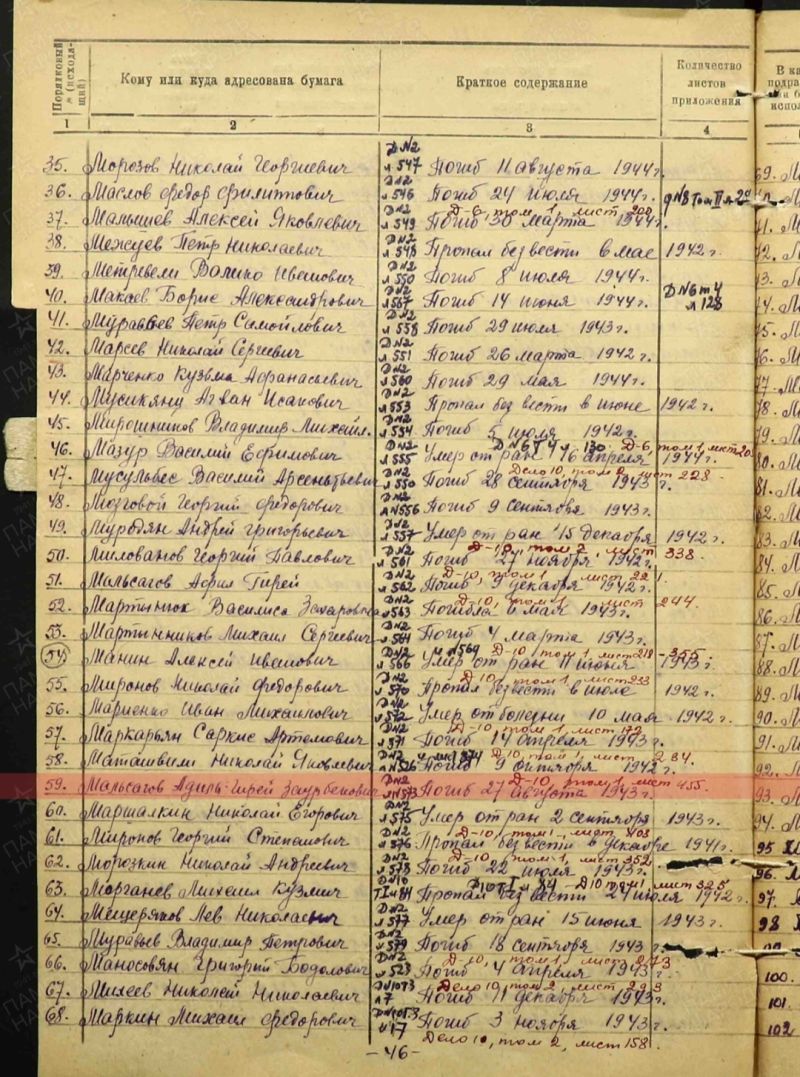 Порядковый № (исходящий)
Кому или куда адресована бумага
Краткое содержание
Количество листов приложения
1 2 3 4
35. Морозов Николай Георгиевич Д№2 л 547 Погиб 11 августа 1944г.
36. Маслов Федор Филиппович Д№2 л 546 Погиб 24 июля 1944г.
37. Малышев Алексей Яковлевич Д№2 л 549 Погиб 30 марта 1944г. Д-6, том 1, лист 200
38. Межуев Петр Николаевич Д№2 л 548 Пропал без вести в мае 1942 г.
39. Метревели Валико Иванович Д№2 л 550 Погиб 8 июля 1944г.
40. Макаев Борис Александрович Д№2 л 567 Погиб 14 июня 1944г. Д№6 т 4 л 128
41. Муравьев Петр Самойлович Д№2 л 558 Погиб 29 июля 1943г.
42. Марсев Николай Сергеевич Д№2 л 551 Погиб 26 марта 1942 г.
43. Марченко Кузьма Афанасьевич Д№2 л 560 Погиб 29 мая 1944г.
44. Мусикянц Агван Исакович Д№2 л 553 Пропал без вести в июне 1942 г.
45. Мирошников Владимир Михайл. Д№2 л 554 Погиб 5 июля 1942 г.
46. Мазур Василий Ефимович Д№2 л 555 Умер от ран 16 апреля 1944г. Д№6 т 4 л 130
47. Мусульбес Василий Арсентьевич Д№2 л 550 Погиб 28 сентября 1943 г. Дело 10, том 2, лист 228
48. Мозговой Георгий Федорович Д№2 л№556 Погиб 9 сентября 1943г.
49. Мурадян Андрей Григорьевич Д№2 л 557 Умер от ран 15 декабря 1942 г.
50. Милованов Георгий Павлович Д№2 л 561 Погиб 27 ноября 1942г. Д-10, том 2, лист 338
51. Мальсагов Адил Гирей Д№2 л 562 Погиб декабря 1942г. Д-10, том 1, лист 221
52. Мартынюк Василиса Захаровна Д№2 л 563 Погибла 6 мая 1943г. Д-10, том 1, лист 244
53. Мартынников Михаил Сергеевич Д№2 л 564 Погиб 4 марта 1943г.
54. Манин Алексей Иванович Д№2 л 566 Умер от ран 11 июня 1943г. и №569 Д-10, том 1, лист 218 - 355
55. Миронов Николай Федорович Д№2 л 570 Пропал без вести в июле 1942 г. Д 10, том 1, лист 233
56. Мариенко Иван Михайлович Д№2 л 572 Умер от болезни 10 мая 1942 г.
57. Маркарьян Саркис Артемович Д№2 л 571 Погиб 14 апреля 1943г. Д-10, том 1, лист 179
58. Маташвили Николай Яковлевич Д№2 л№526 Погиб 9 октября 1942 г. Д-10, том 1, 284
59. Мальсагов Адиль-Гирей Заурбекович Д№2 л№573 Погиб 27 августа 1943г. Д-10, том 1, лист 455
60. Маршалкин Николай Егорович Д№2 л 575 Умер от ран 2 сентября 1943г.
61. Миронов Георгий Степанович Д№2 л 576 Пропал без вести в декабре 1941г. Д-10, том 1, лист 403
62. Морозкин Николай Андреевич Д№2 л 578 Погиб 22 июля 1943г. Д-10, том 1, лист 352
63. Морганев Михаил Кузмич Т I л 84 Пропал без вести 24 июля 1942 г. Д 10 том 1, лист 325
64. Мещеряков Лев Николаевич Д№2 л 577 Умер от ран 15 июня 1943 г.
65. Муравьев Владимир Петрович Д№2 л 579 Погиб 18 сентября 1943 г.
66. Маносовян Григорий Бодолович Д№2 л 523 Погиб 4 апреля 1943г. Д-10, том 1, лист 273
67. Михеев Николай Николаевич Д№1073 л 7 Погиб 11 декабря 1943г. Дело 10, том 2, лист 293
68. Маркин Михаил Федорович л 17 Погиб 3 ноября 1943г.
Дело 10, том 2, лист 158.
-46-